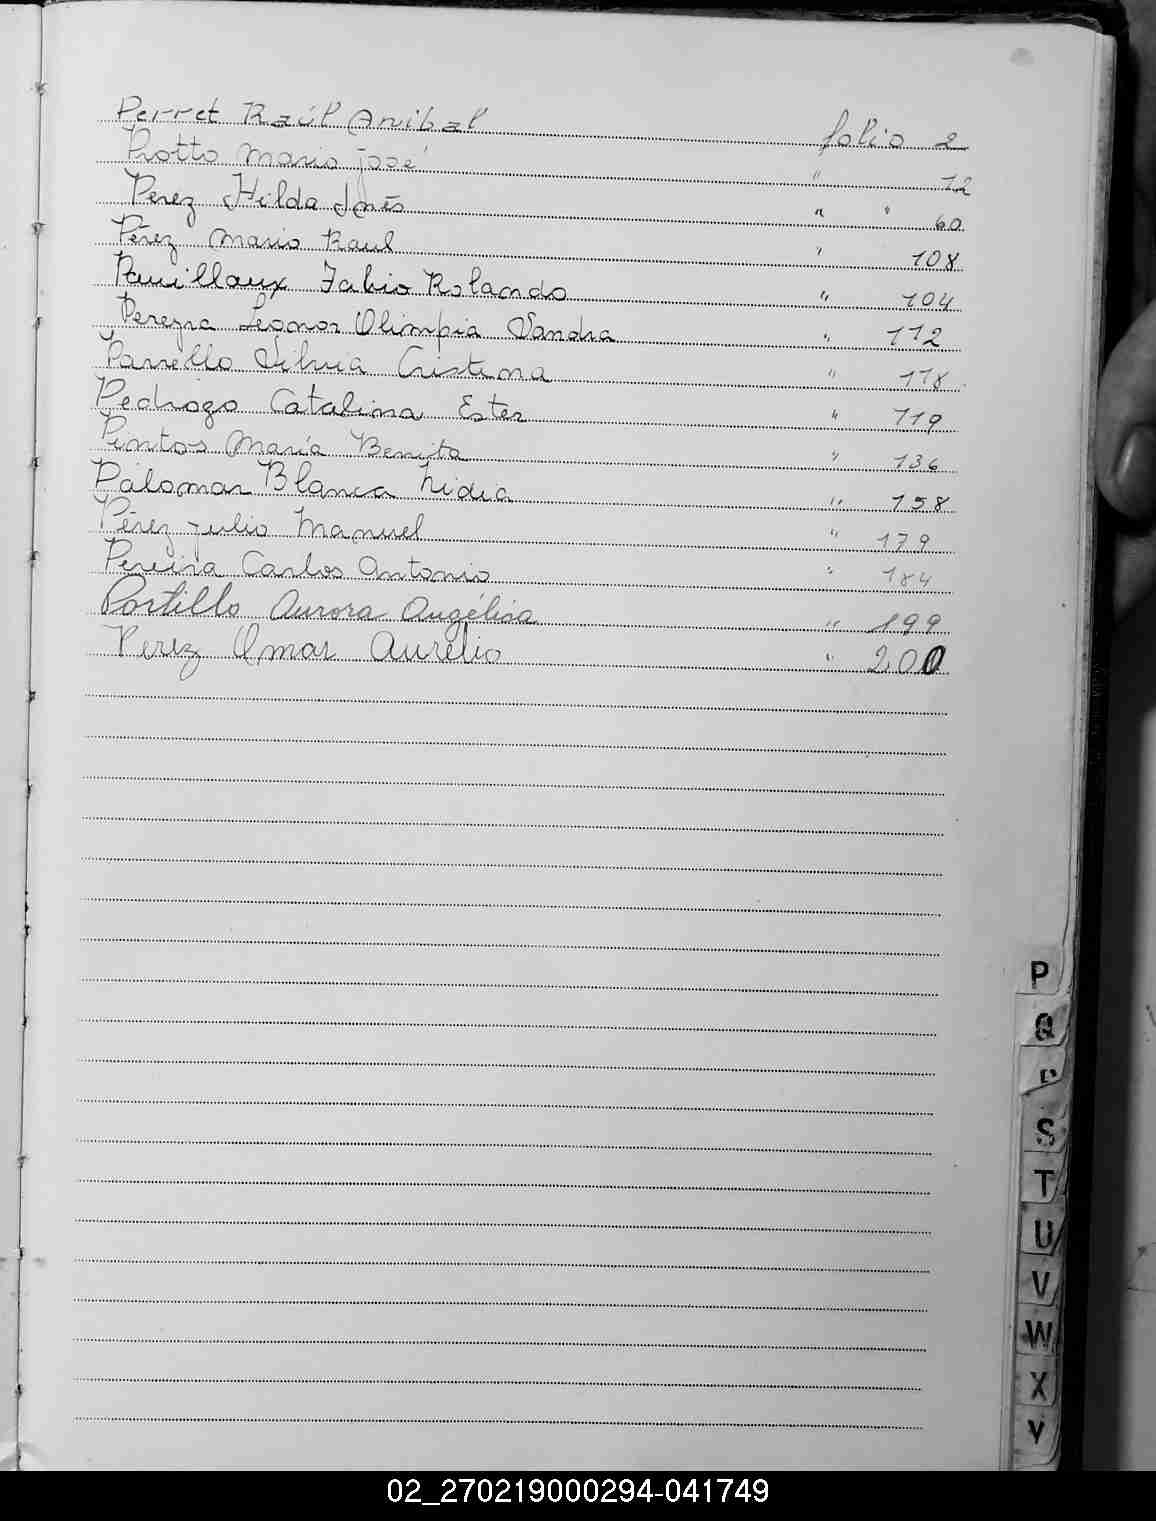 Perret Raúl Anibal folio 2
Protto Mario José " 12
Perez Hilda Inés " " 60
Pérez Mario Raul " 108
Pauilloux Fabio Rolando " 104
Pereyra Leonor Olimpia Sandra " 112
Parrello Silvia Cristina " 118
Pedrozo Catalina Ester " 119
Pintos María Benita " 136
Palomar Blanca Lidia " 158
Pérez Julio Manuel " 179
Pereira Carlos Antonio " 184
Portillo Aurora Angélica " 199
Perez Omar Aurelio " 200
P
Q
S
T
U
V
W
X
Y
02_270219000294-041749